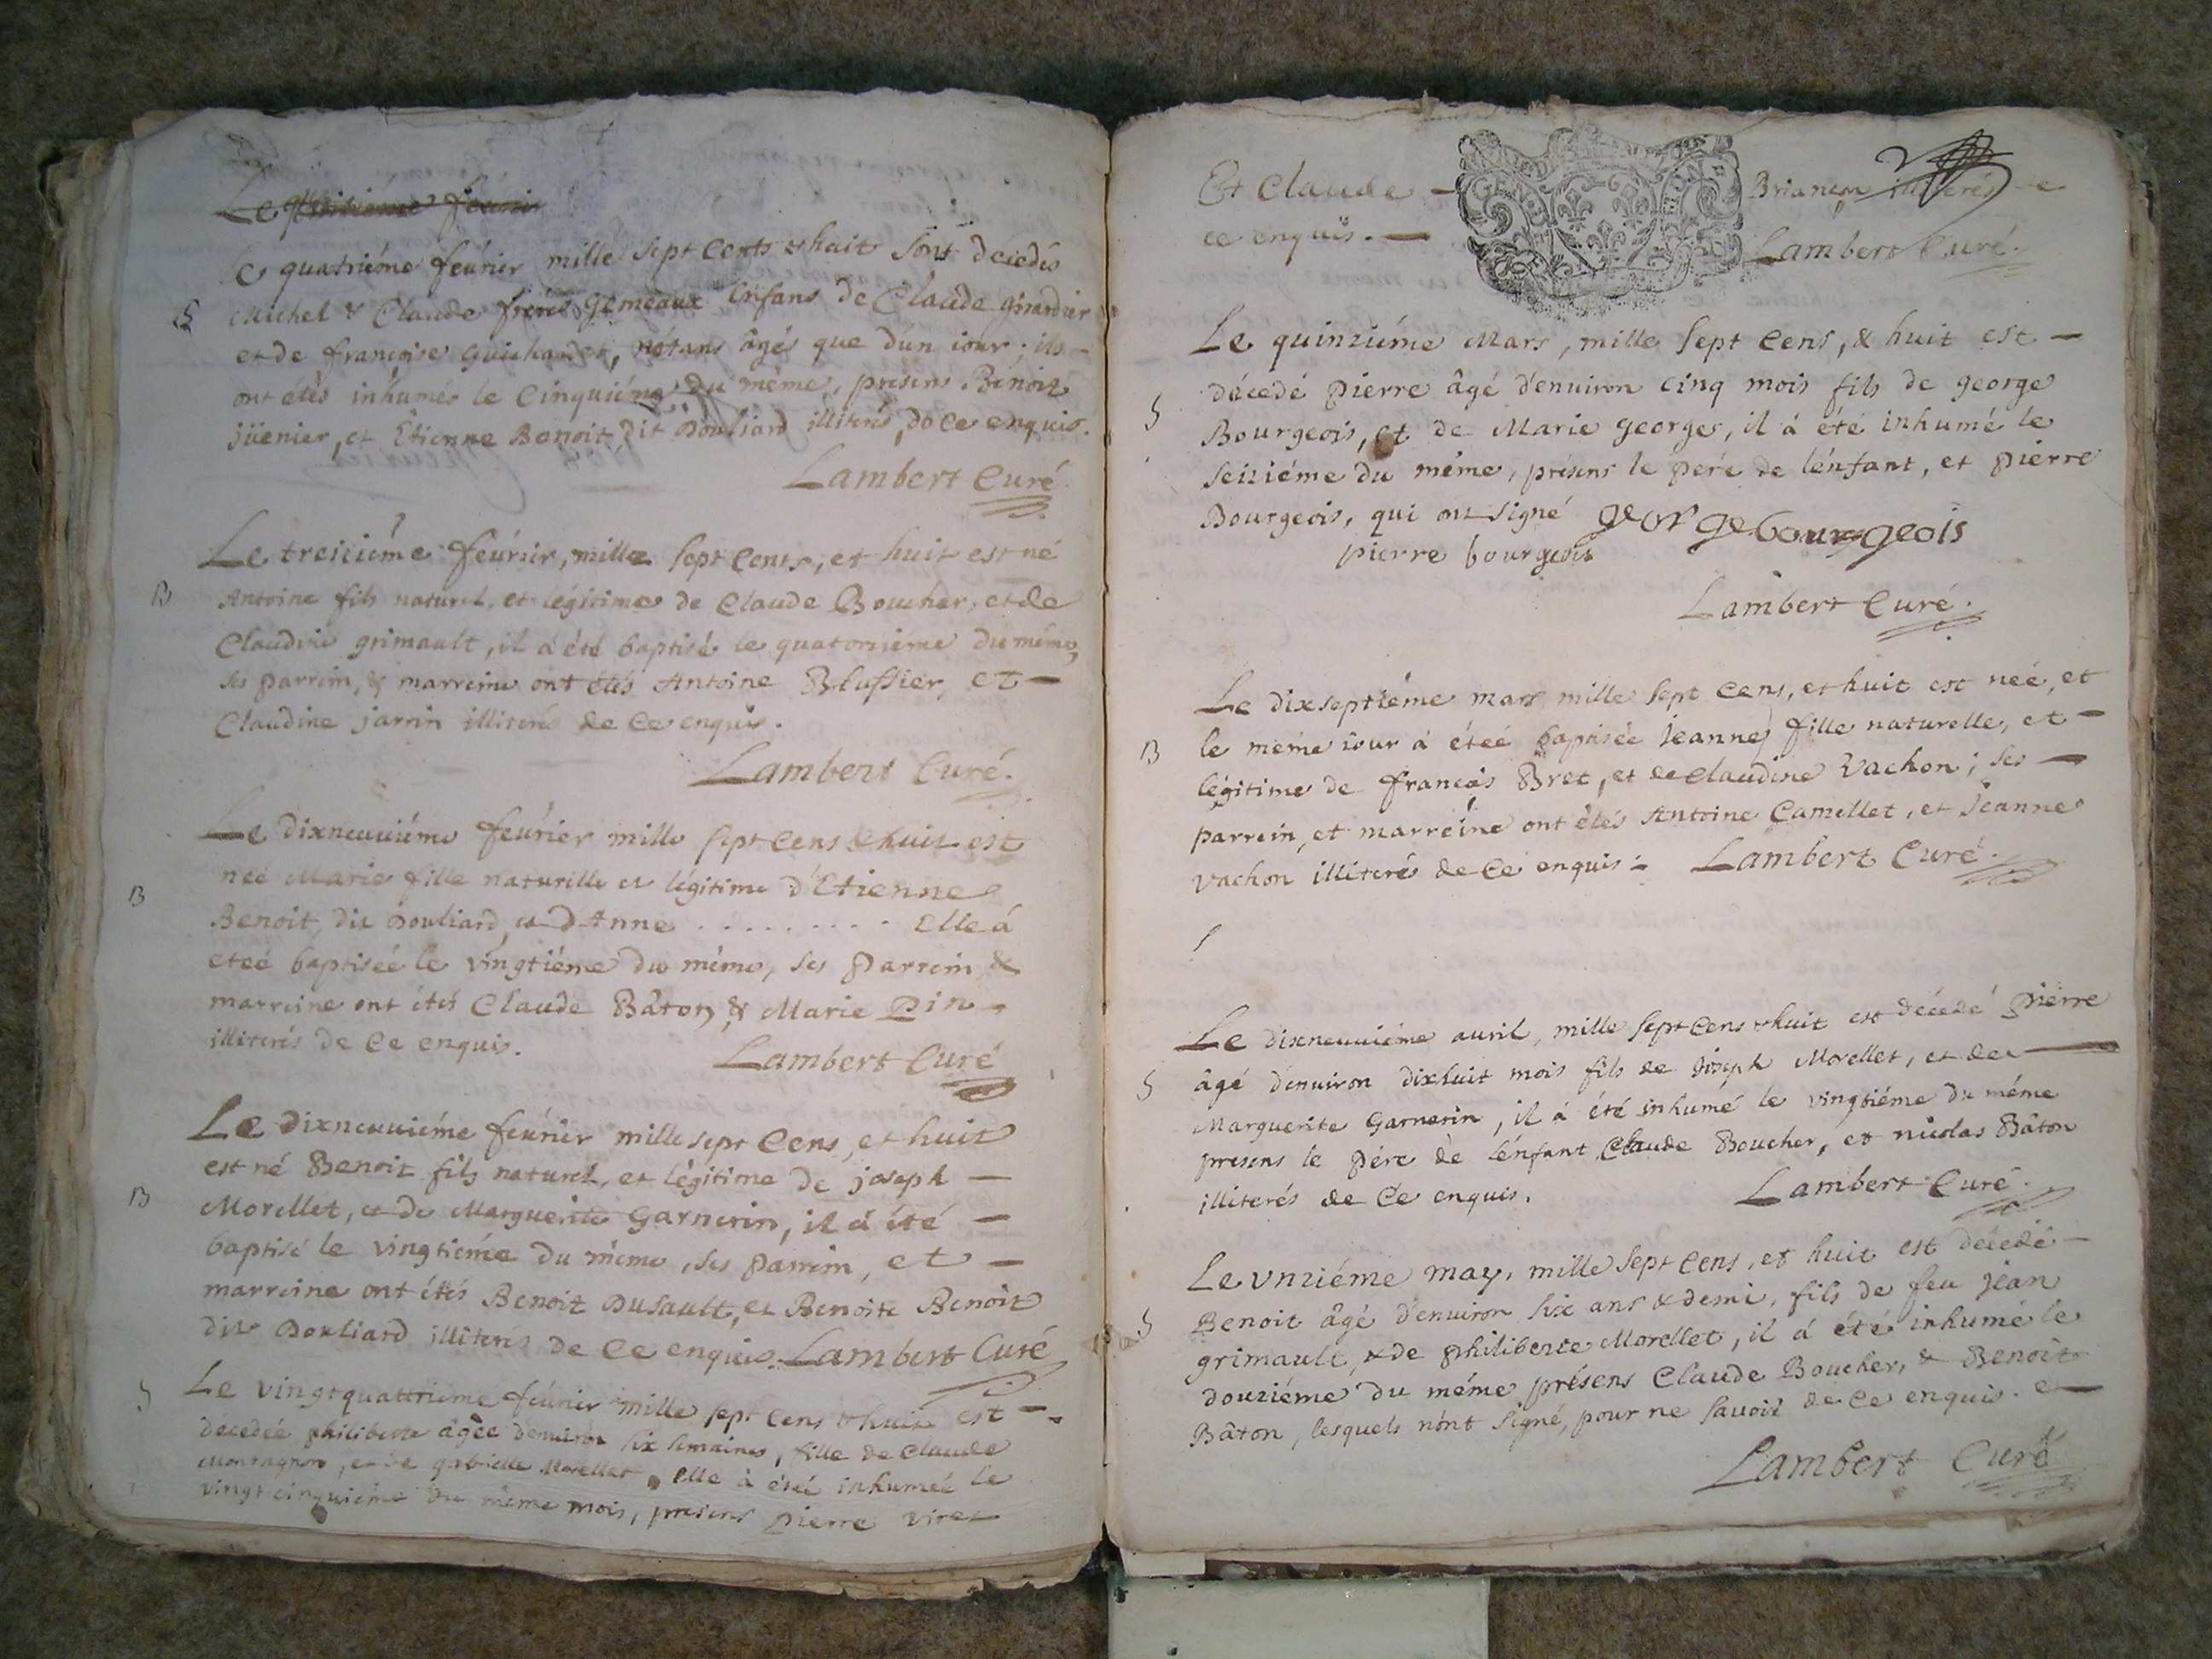 Le
Le quatriéme feúrier mille sept cents & huit sont décedés
S Michel & Claude fréres Gemeaux enfans de Claude girardier
et de françoise Guichardet, nétans âgés que dún iour; ils -
ont étés inhumés le Cinquiéme du méme, presens Benoit
júenier, et Étienne Benoit dit Douliard illiterés, de ce enquis.
Lambert Curé
Le treiziéme feúrier, mille sept cents, et huit est né
B Antoine fils naturel, et légitime de Claude Boucher, et de
Claudine grimault, il á été baptisé le quatorziéme du méme,
ses parrein, & marreine ont étés Antoine Blussier, et —
Claudine jarrin illiterés de ce enquis.
Lambert Curé.
Le dixneuuiéme feúrier mille sept cens & huit est
B neé Marie fille naturelle et légitime d'Etienne
Benoit, dit Douliard, et d'Anne . . . . . . . . Elle á
eteé baptiseé le vingtiéme du méme, ses Parrein &
marreine ont étés Claude Bâton, & Marie Pin -
illiterés de ce enquis.
Lambert Curé
Le dixneuuiéme feúrier mille sept cens, et huit
est né Benoit fils naturel, et légitime de joseph —
B Morellet, et de Marguerite Garnerin, il á été —
baptisé le vingtiéme du méme, ses parrein, et —
marreine ont étés Benoit Dusault, et Benoite Benoit
dit Douliard illiterés de ce enquis. Lambert Curé
S Le vingtquattriéme feúrier mille sept cens & huit est -
decedeé philiberte âgeé denuiron six semaines, fille de Claude
Montagnon, et de gabrielle Morellet, elle á éteé inhumeé le
vingtcinquiéme du méme mois, presens Pierre viret
Et Claude — Briançon illiterés de
ce enquis. — Lambert Curé.
Le quinziéme Mars, mille sept cens, & huit est —
S décedé pierre âgé d'enuiron cinq mois fils de george
Bourgeois, et de Marie georges, il á été inhumé le
seiziéme du méme, présens le pére de lénfant, et pierre
Bourgeois, qui ont signé george bourgeois
pierre bourgeois
Lambert Curé.
Le dixseptiéme mars mille sept cens, et huit est neé, et
B le méme iour á éteé baptiseé Jeanne fille naturelle, et —
légitime de françois Bret, et de claudine Vachon; ses —
parrein, et marreine ont étés Antoine Camellet, et Jeanne
Vachon illiterés de ce enquis. Lambert Curé.
Le dixneuuiéme auril, mille sept cens & huit est décedé pierre
S âgé d'enuiron dixhuit mois fils de Joseph Morellet, et de —
Marguerite Garnerin, il á été inhumé le vingtiéme du méme
presens le pére de lénfant Claude Boucher, et nicolas Bâton
illiterés de ce enquis. Lambert Curé.
Le vnziéme may, mille sept cens, et huit est décedé —
S Benoit âgé d'enuiron six ans & demi, fils de feu jean
grimault, & de philiberte Morellet, il á été inhumé le
douziéme du méme présens Claude Boucher, & Benoit
Bâton, lesquels nónt signé, pour ne sauoir de ce enquis. et —
Lambert Curé